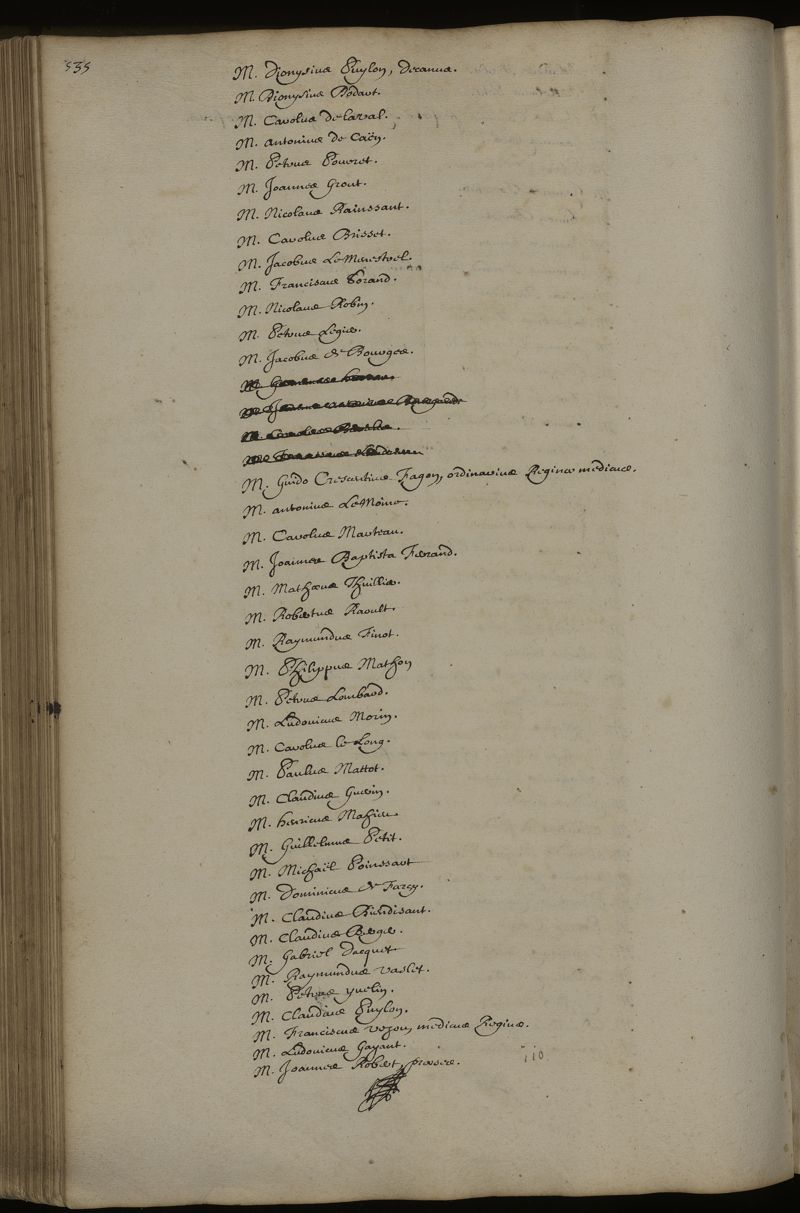 535
M. Dionysius Puylon, decanus.
M. Dionysius Dodart.
M. Carolus de Laval.
M. antonius de Caën.
M. Petrus Poueret.
M. Joannes Grout.
M. Nicolaus Rainssant.
M. Carolus Brisset.
M. Jacobus Le Menestrel.
M. Franciscus Lorand.
M. Nicolaus Robin.
M. Petrus Legier.
M. Jacobus de Bourges.
M.
M.
M.
M.
M. Guido Crescentius Fagon, ordinarius Reginæ medicus.
M. antonius Le Moine.
M. Carolus Marteau.
M. Joannes Baptista Ferrand.
M. Mathæus Thuillier.
M. Robertus Raoult.
M. Raymundus Finot.
M. Philippus Mathon
M. Petrus Lombard.
M. Ludovicus Morin.
M. Carolus le Long.
M. Paulus Mattot.
M. Claudius Guerin.
M. henricus Mahieu
M. Guillelmus Petit.
M. Michaël Poinssart
M. Dominicus de Farcy.
M. Claudius Biendisant.
M. Claudius Berger.
M. Gabriel Dacquet
M. Raymundus Vaslet.
M. Petrus yvelin.
M. Claudius Puylon.
M. Franciscus Vezou, medicus Reginæ.
M. Ludovicus Gayant.
M. Joannes Robert,
110